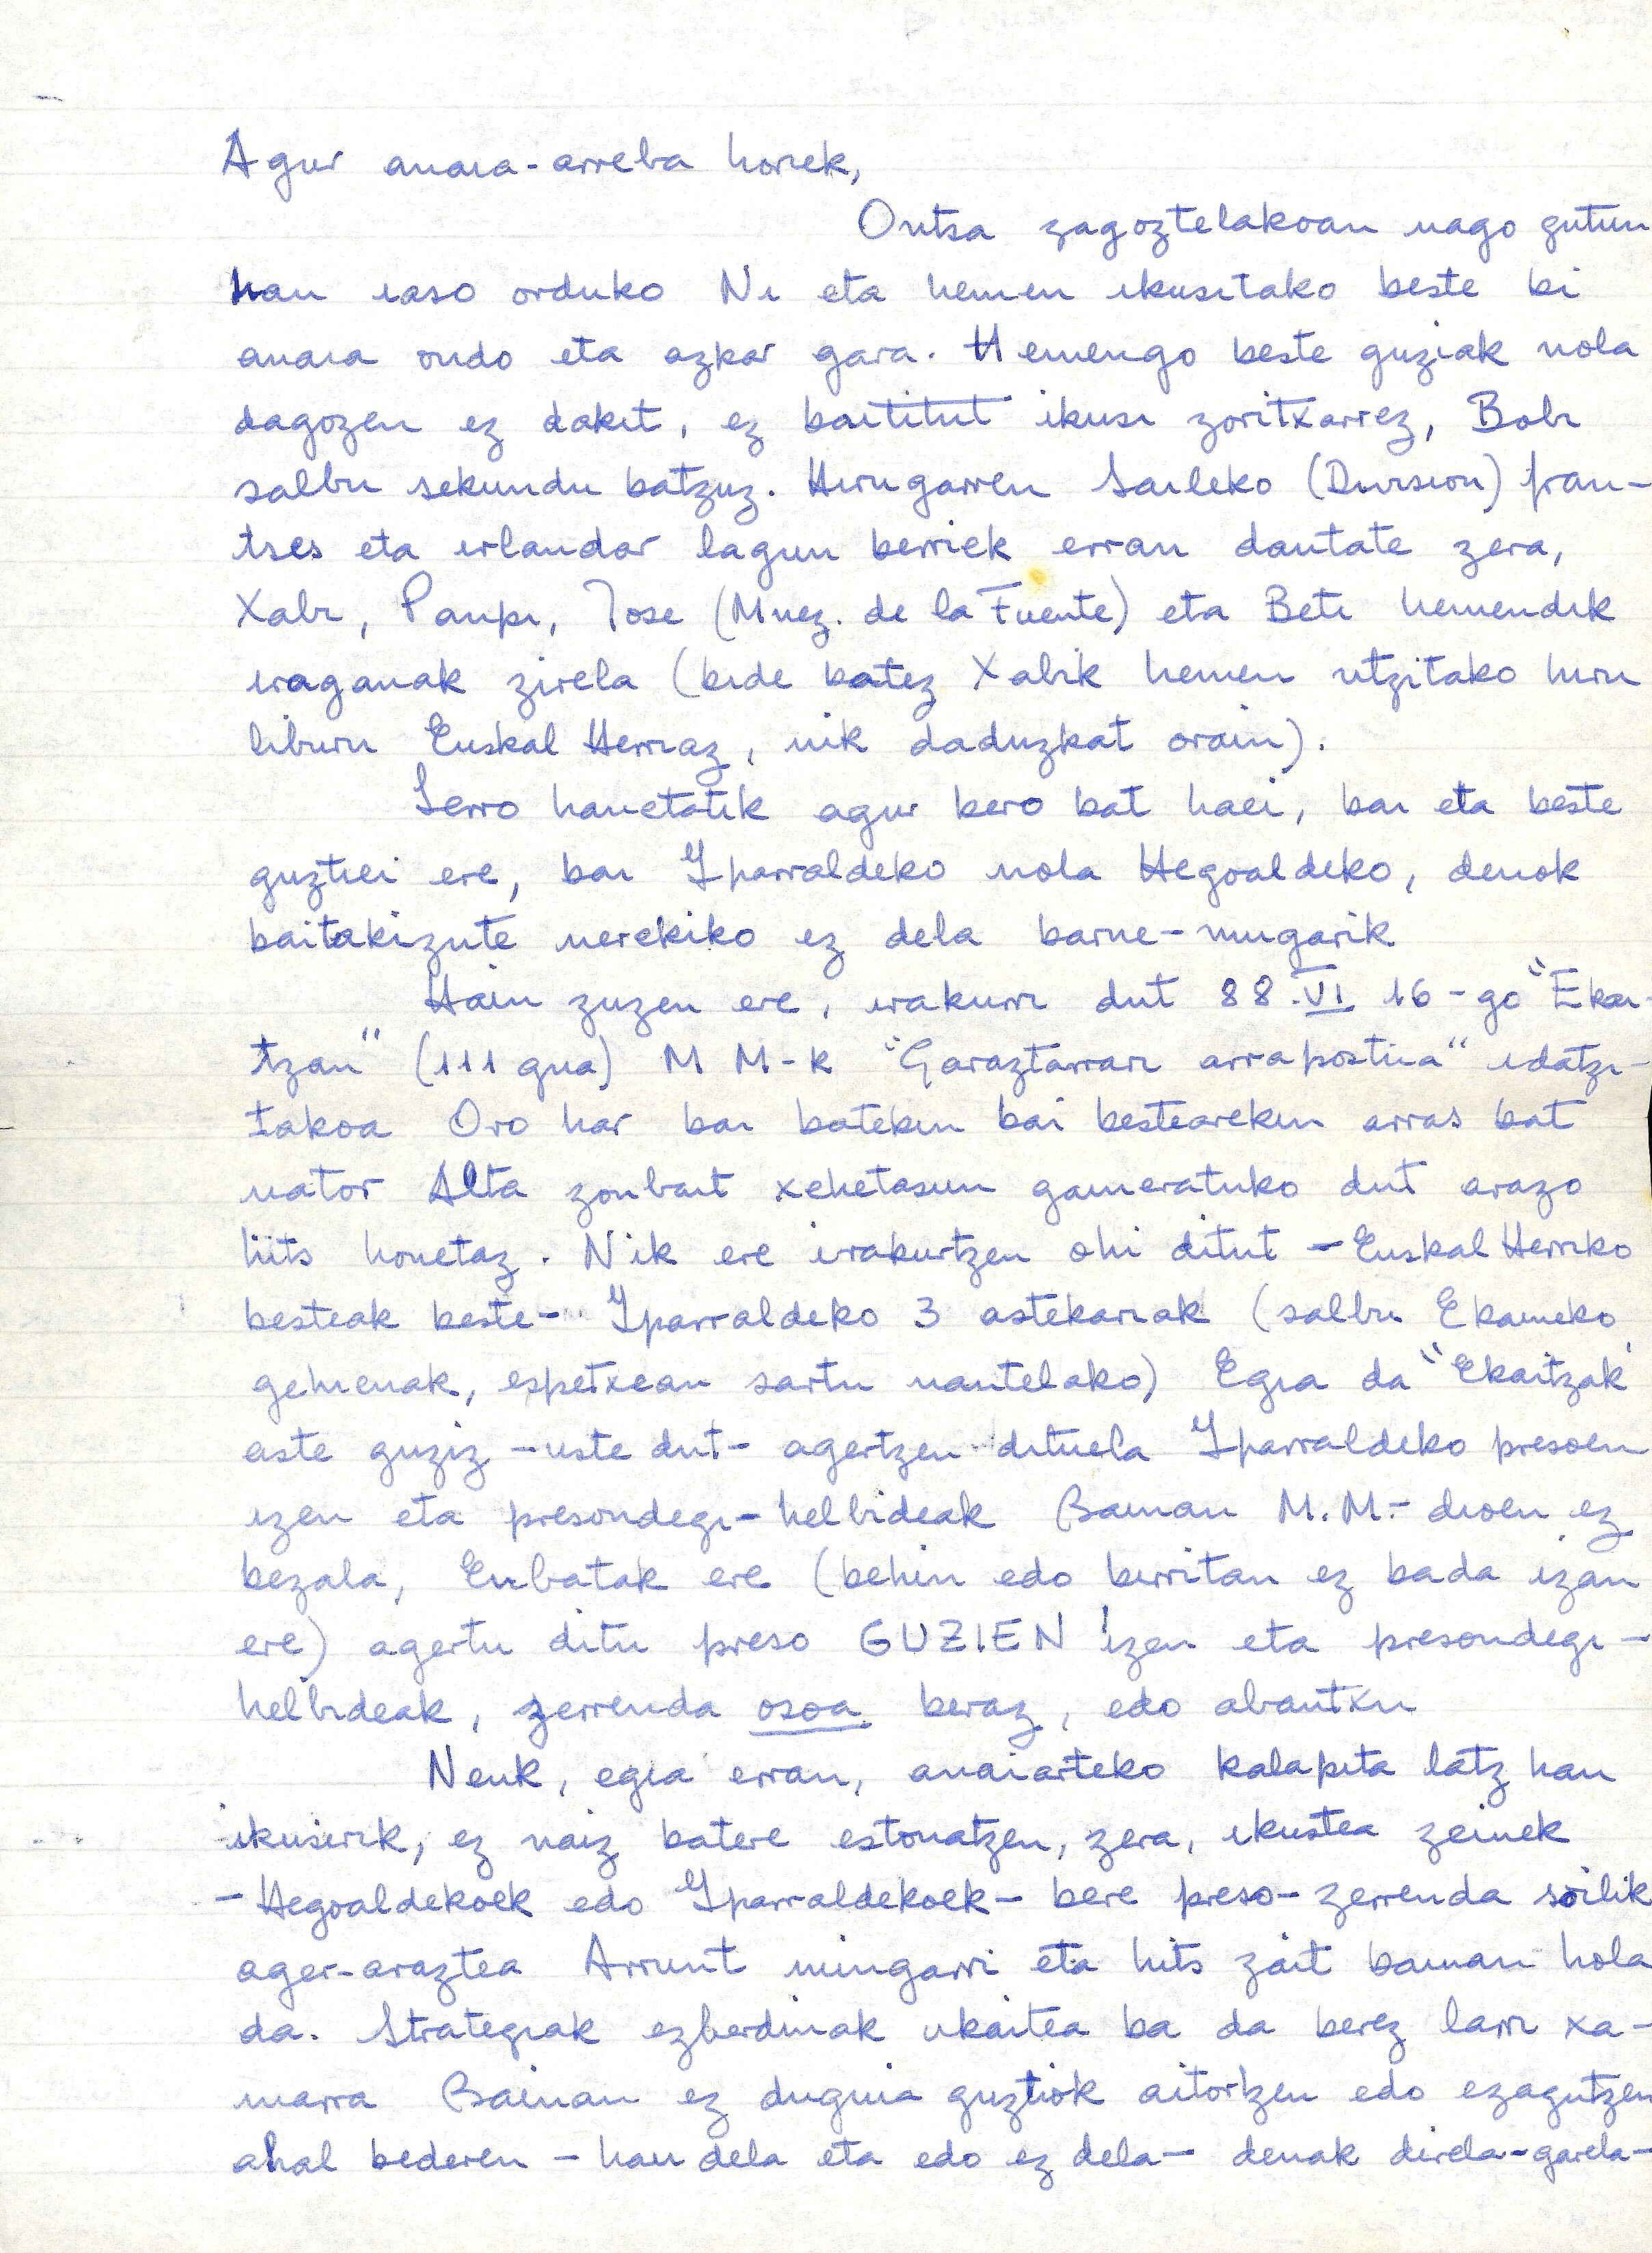 Agur anaia-arreba horiek,
Ontsa zagoztelakoan nago gutun
hau iaso orduko Ni eta hemen ikusitako beste bi
anaia ondo eta azkar gara. Hemengo beste guziak nola
dagozen ez dakit, ez baititut ikusi zoritxarrez, Bobi
salbu sekundu batzuz. Hirugarren Saileko (Division) fran-
tses eta irlandar lagun berriek erran dautate zera,
Xabi, Panpi, Jose (Mnez. de la Fuente) eta Beti hemendik
iraganak zirela (bide batez Xabik hemen utzitako hiru
liburu Euskal Herriaz, nik daduzkat orain).
Lerro hauetatik agur bero bat haei, bai eta beste
guztiei ere, bai Iparraldeko nola Hegoaldeko, denok
baitakizute nerekiko ez dela barne-mugarik
Hain zuzen ere, irakurri dut 88.VI 16-go "Ekai-
tzan" (111 gna) M M-k "Garaztarrari arrapostua" idatzi-
takoa Oro har bai batekin bai bestearekin arras bat
nator Alta zonbait xehetasun gaineratuko dut arazo
hits honetaz. Nik ere irakurtzen ohi ditut - Euskal Herriko
besteak beste- Iparraldeko 3 astekariak (salbu Ekaineko
gehienak, espetxean sartu nautelako) Egia da "Ekaitzak"
aste guziz -uste dut- agertzen dituela Iparraldeko presoen
izen eta presondegi-helbideak Bainan M.M.- dioen ez
bezala, Enbatak ere (behin edo birritan ez bada izan
ere) agertu ditu preso GUZIEN izen eta presondegi-
helbideak, zerrenda osoa beraz, edo abantxu
Neuk, egia erran, anaiarteko kalapita latz hau
ikusirik, ez naiz batere estonatzen, zera, ikustea zeinek
-Hegoaldekoek edo Iparraldekoek- bere preso-zerrenda soilik
ager-araztea Arrunt mingarri eta hits zait bainan hola
da. Strategiak ezberdinak ukaitea ba da berez larri xa-
marra Bainan ez duguia guztiok aitortzen edo ezagutzen
ahal bederen - hau dela eta edo ez dela- denak direla-garela-